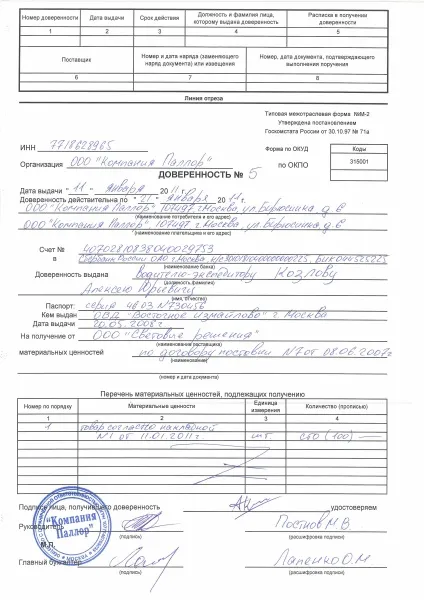 Номер доверенности Дата выдачи Срок действия Должность и фамилия лица, которому выдана доверенность Расписка в получении доверенности
1 2 3 4 5
Поставщик Номер и дата наряда (заменяющего наряд документа) или извещения Номер, дата документа, подтверждающего выполнения поручения
6 7 8
Линия отреза
Типовая межотраслевая форма №М-2
Утверждена постановлением
Госкомстата России от 30.10.97 № 71а
ИНН 7718628965
Форма по ОКУД Коды
Организация ООО "Компания Паллор" по ОКПО 315001
ДОВЕРЕННОСТЬ № 5
Дата выдачи "11" января 2011г.
Доверенность действительна по "21" января 2011г.
ООО "Компания Паллор" 107497 г. Москва, ул. Бирюсинка д.6
(наименование потребителя и его адрес)
ООО "Компания Паллор" 107497 г. Москва, ул. Бирюсинка д.6
(наименование плательщика и его адрес)
Счет № 40702810838040029753
в Сбербанк России ОАО г. Москва, БИК 044525225
(наименование банка)
Доверенность выдана водителю-экспедитору Козлову
(должность, фамилия)
Алексею Юрьевичу
(имя, отчество)
Паспорт: серия 4603 №730456
Кем выдан ОВД "Восточное Измайлово" г. Москва
Дата выдачи 20.05.2008г.
На получение от ООО "Световые решения"
(наименование поставщика)
материальных ценностей по договору поставки №7 от 08.06.2007г.
(наименование)
(номер и дата документа)
Перечень материальных ценностей, подлежащих получению
Номер по порядку Материальные ценности Единица измерения Количество (прописью)
1 2 3 4
1 товар согласно накладной
№1 от 11.01.2011г. шт. сто (100)
Подпись лица, получившего доверенность удостоверяем
Руководитель Постнов М.В.
(подпись) (расшифровка подписи)
М.П.
Главный бухгалтер Лапенко О.Н
(подпись) (расшифровка подписи)
"Компания Паллор"
МОСКВА